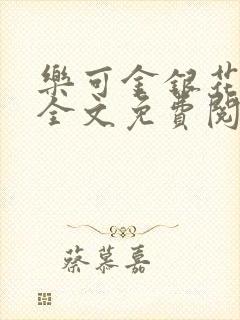 樂可金銀花
全文免費閱
蔡慕嘉